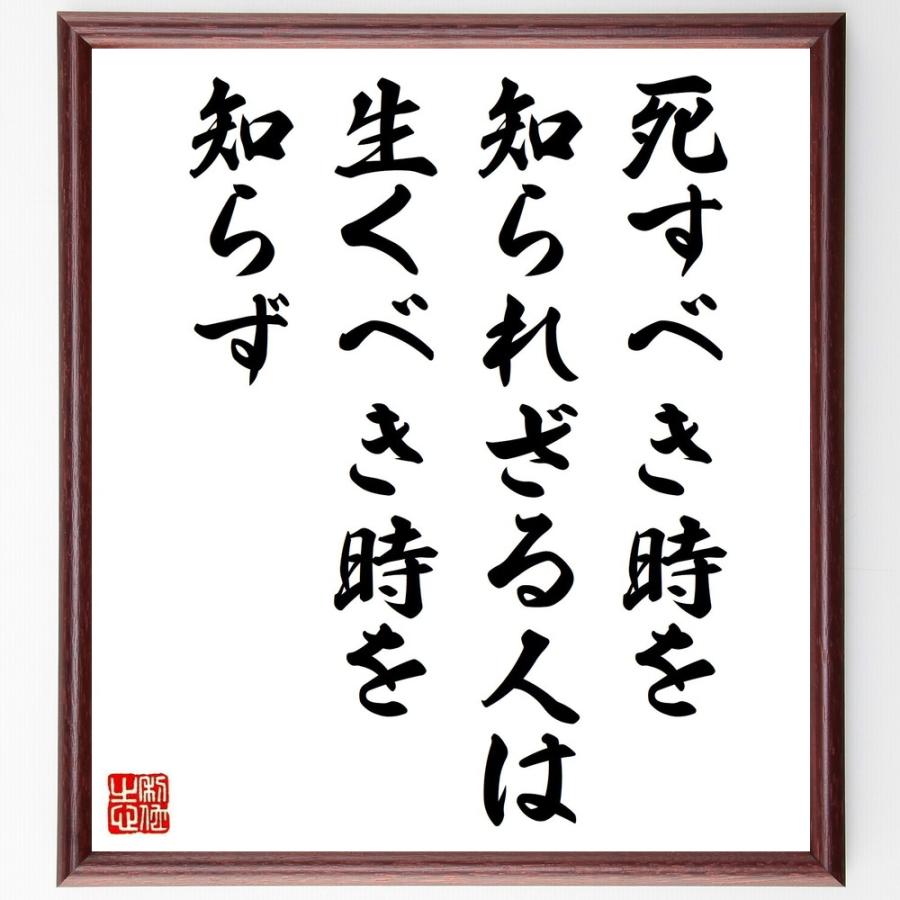 死すべき時を
知られざる人は
生くべき時を
知らず